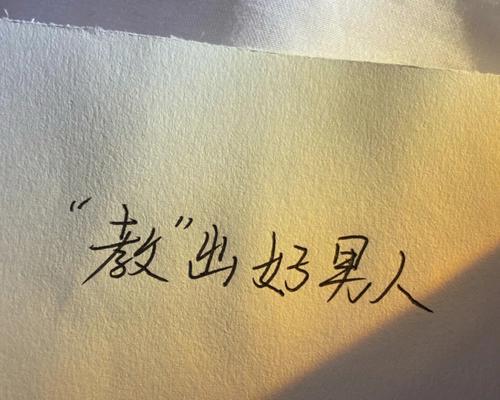 “教”出好男人